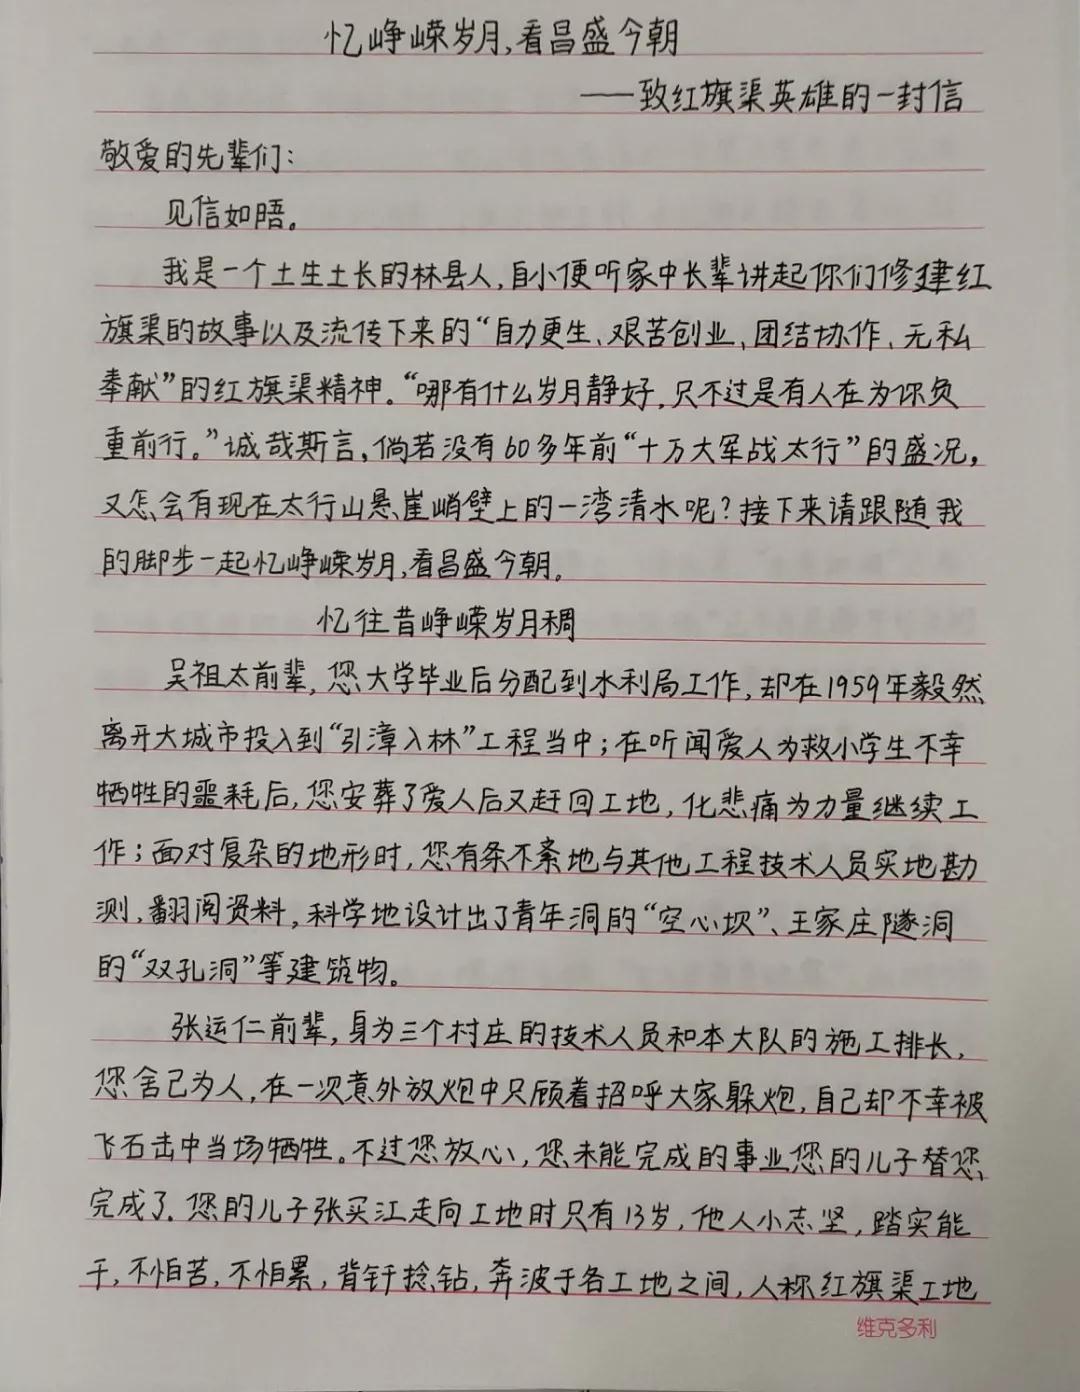 忆峥嵘岁月,看昌盛今朝
——致红旗渠英雄的一封信
敬爱的先辈们:
见信如晤。
我是一个土生土长的林县人,自小便听家中长辈讲起你们修建红
旗渠的故事以及流传下来的“自力更生、艰苦创业、团结协作、无私
奉献”的红旗渠精神。“哪有什么岁月静好,只不过是有人在为你负
重前行。”诚哉斯言,倘若没有60多年前“十万大军战太行”的盛况,
又怎会有现在太行山悬崖峭壁上的一湾清水呢?接下来请跟随我
的脚步一起忆峥嵘岁月,看昌盛今朝。
忆往昔峥嵘岁月稠
吴祖太前辈,您大学毕业后分配到水利局工作,却在1959年毅然
离开大城市投入到“引漳入林”工程当中;在听闻爱人为救小学生不幸
牺牲的噩耗后,您安葬了爱人后又赶回工地,化悲痛为力量继续工
作;面对复杂的地形时,您有条不紊地与其他工程技术人员实地勘
测,翻阅资料,科学地设计出了青年洞的“空心坝”、王家庄隧洞
的“双孔洞”等建筑物。
张运仁前辈,身为三个村庄的技术人员和本大队的施工排长,
您舍己为人,在一次意外放炮中只顾着招呼大家躲炮,自己却不幸被
飞石击中当场牺牲。不过您放心,您未能完成的事业您的儿子替您
完成了。您的儿子张买江走向工地时只有13岁,他人小志坚,踏实能
干,不怕苦,不怕累,背钎捻钻,奔波于各工地之间,人称红旗渠工地
维克多利